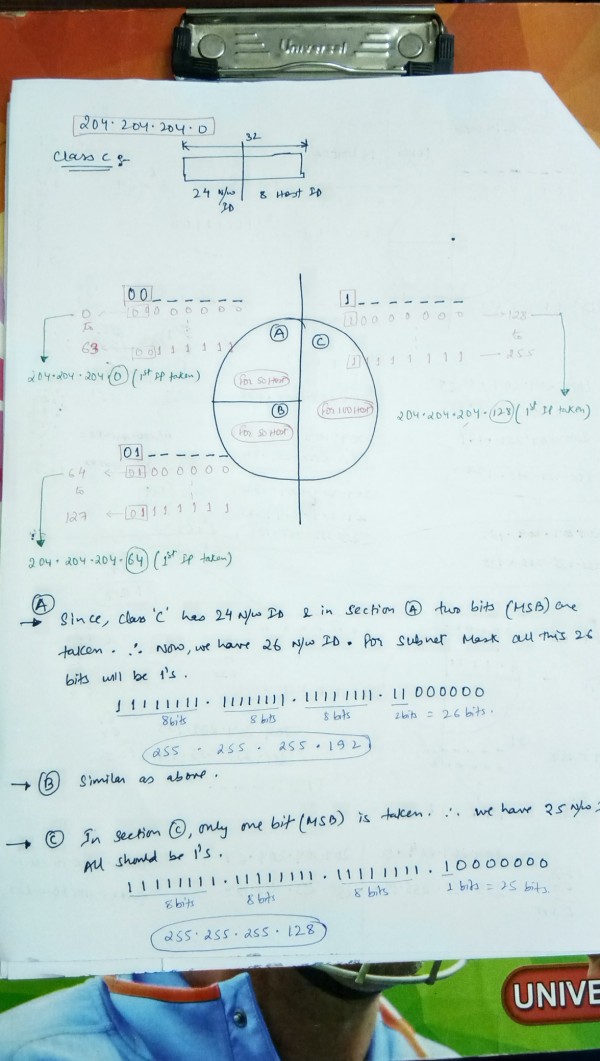 Universal
204.204.204.0
Class C :-
32
24 N/w ID
8 Host ID
00
0 ← 00 0 0 0 0 0 0
to
63 ← 00 1 1 1 1 1 1
204.204.204.0 (1st IP taken)
A
For 50 Host
B
For 50 Host
C
For 100 Host
1
1 0 0 0 0 0 0 0 → 128
to
1 1 1 1 1 1 1 1 → 255
204.204.204.128 (1st IP taken)
01
64 ← 01 0 0 0 0 0 0
to
127 ← 01 1 1 1 1 1 1
204.204.204.64 (1st IP taken)
A
→ Since, class 'C' has 24 N/w ID & in section A two bits (MSB) are
taken. ∴ Now, we have 26 N/w ID. For subnet Mask all this 26
bits will be 1's.
11111111.11111111.11111111.11000000
8bits 8bits 8bits 2bits = 26 bits.
255.255.255.192
→ B Similar as above.
→ C In section C, only one bit (MSB) is taken. ∴ we have 25 N/w
All should be 1's.
11111111.11111111.11111111.10000000
8bits 8bits 8bits 1 bits = 25 bits.
255.255.255.128
UNIVE